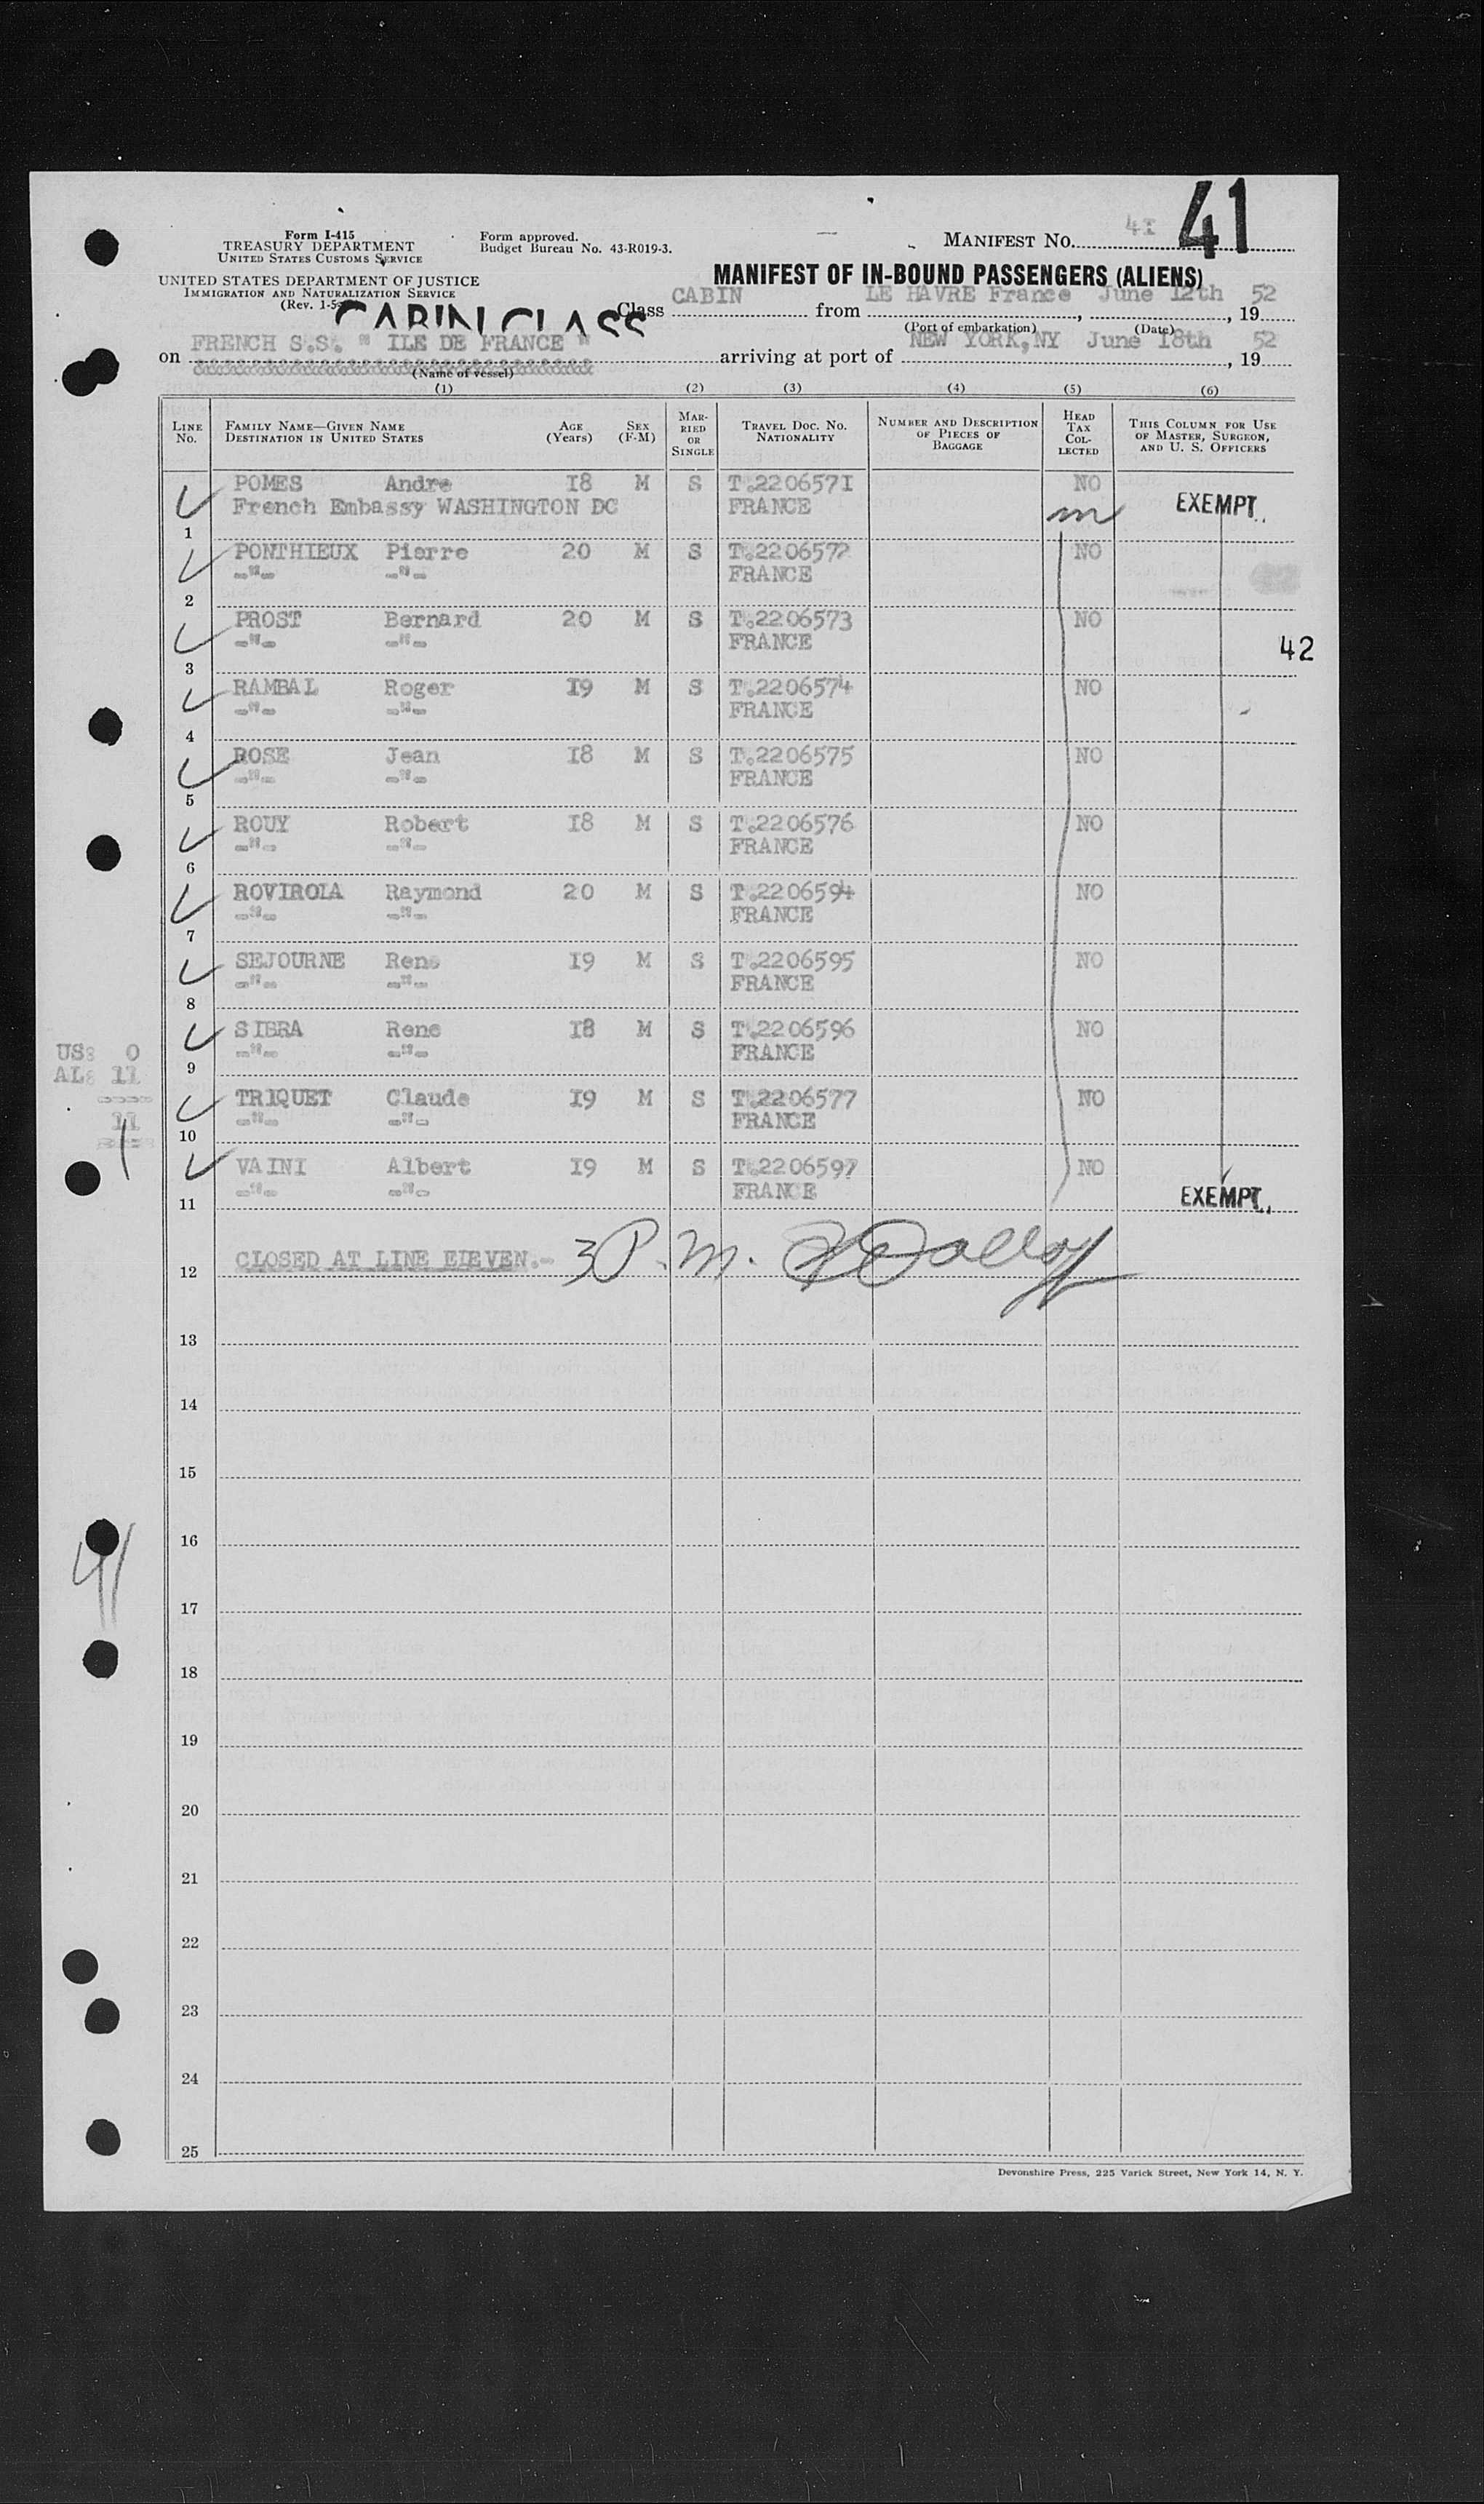 41
Form I-415
TREASURY DEPARTMENT
UNITED STATES CUSTOMS SERVICE
Form approved.
Budget Bureau No. 43-R019-3.
MANIFEST No. 4I
UNITED STATES DEPARTMENT OF JUSTICE
IMMIGRATION AND NATURALIZATION SERVICE
(Rev. 1-5
MANIFEST OF IN-BOUND PASSENGERS (ALIENS)
CABIN CLASS
Class CABIN from LE HAVRE France, June 12th, 1952
(Port of embarkation) (Date)
on FRENCH S.S. " ILE DE FRANCE " arriving at port of NEW YORK,NY June I8th, 1952
(Name of vessel)
(1) (2) (3) (4) (5) (6)
LINE No. FAMILY NAME—GIVEN NAME DESTINATION IN UNITED STATES AGE (Years) SEX (F-M) MARRIED OR SINGLE TRAVEL DOC. NO. NATIONALITY NUMBER AND DESCRIPTION OF PIECES OF BAGGAGE HEAD TAX COLLECTED THIS COLUMN FOR USE OF MASTER, SURGEON, AND U. S. OFFICERS
POMES Andre I8 M S T.220657I NO
French Embassy WASHINGTON DC FRANCE m EXEMPT.
1
PONTHIEUX Pierre 20 M S T.2206572 NO
-"- -"- FRANCE
2
PROST Bernard 20 M S T.2206573 NO
-"- -"- FRANCE 42
3
RAMBAL Roger I9 M S T.2206574 NO
-"- -"- FRANCE
4
ROSE Jean I8 M S T.2206575 NO
-"- -"- FRANCE
5
ROUY Robert I8 M S T.2206576 NO
-"- -"- FRANCE
6
ROVIROLA Raymond 20 M S T.2206594 NO
-"- -"- FRANCE
7
SEJOURNE Rene I9 M S T.2206595 NO
-"- -"- FRANCE
8
SIBRA Rene I8 M S T.2206596 NO
-"- -"- FRANCE
US: 0
9
AL: 11
TRIQUET Claude I9 M S T.2206577 NO
-"- -"- FRANCE
11
10
VAINI Albert I9 M S T.2206597 NO
-"- -"- FRANCE EXEMPT.
11
CLOSED AT LINE ELEVEN.- 3 P.M.
12
13
14
15
16
41
17
18
19
20
21
22
23
24
25
Devonshire Press, 225 Varick Street, New York 14, N. Y.